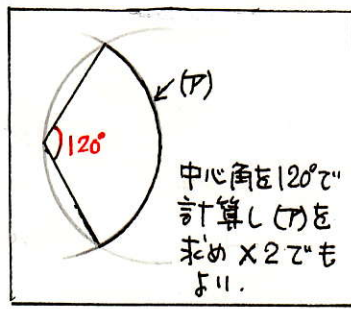 (ア)
120°
中心角を120°で
計算し(ア)を
求め×2でも
よい.